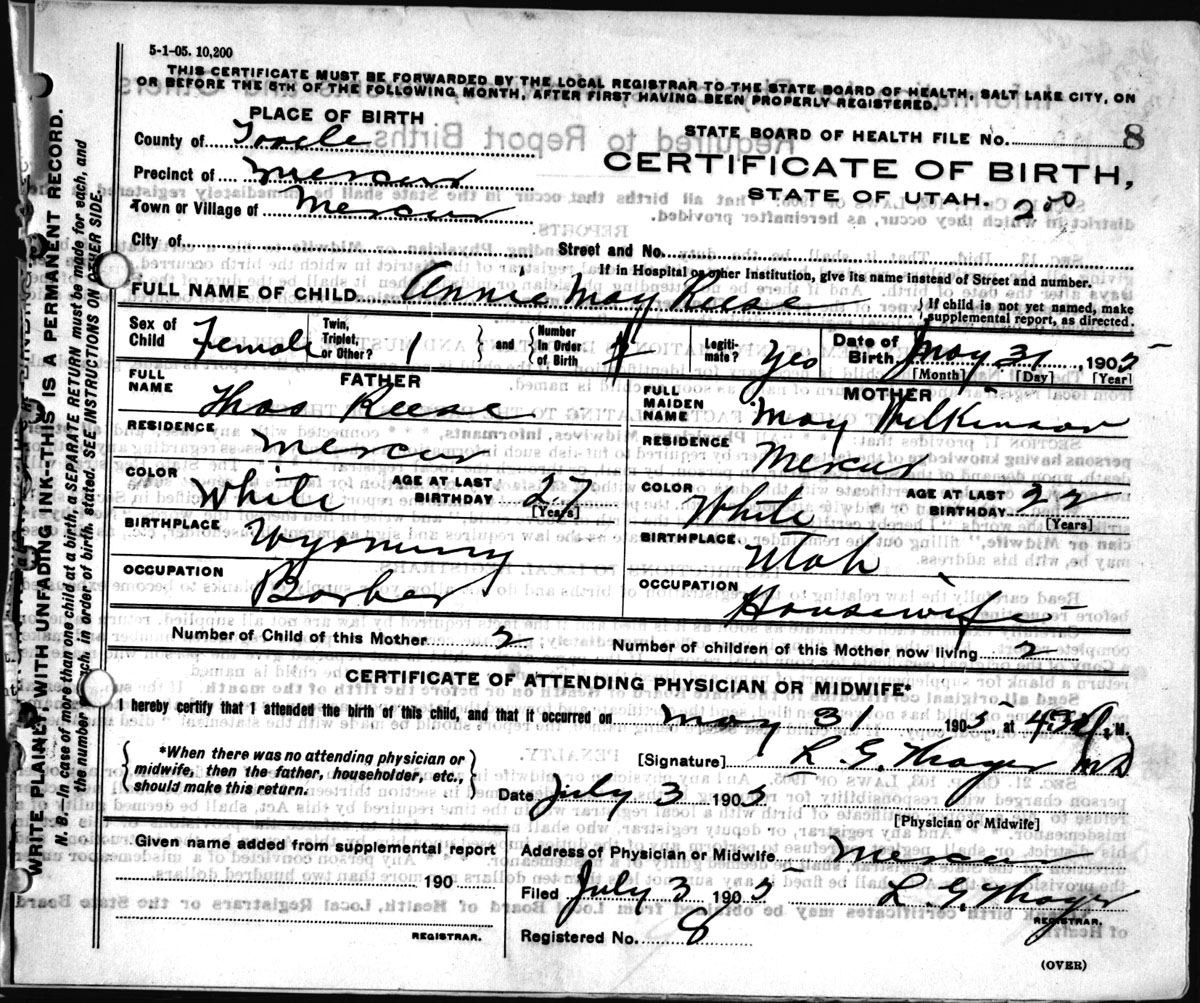 5-1-05. 10,200
THIS CERTIFICATE MUST BE FORWARDED BY THE LOCAL REGISTRAR TO THE STATE BOARD OF HEALTH, SALT LAKE CITY, ON
OR BEFORE THE 5TH OF THE FOLLOWING MONTH, AFTER FIRST HAVING BEEN PROPERLY REGISTERED.
PLACE OF BIRTH
STATE BOARD OF HEALTH FILE NO. 8
County of Tooele
CERTIFICATE OF BIRTH,
Precinct of Mercur
STATE OF UTAH. 200
Town or Village of Mercur
City of Street and No.
If in Hospital or other Institution, give its name instead of Street and number.
FULL NAME OF CHILD Annie May Reese { If child is not yet named, make supplemental report, as directed.
Sex of Child Female Twin, Triplet, or Other? 1 } and { Number In Order of Birth Legiti-mate? Yes Date of Birth May 31 1905
[Month] [Day] [Year]
FATHER MOTHER
FULL NAME Thos Reese FULL MAIDEN NAME May Wilkinson
RESIDENCE Mercur RESIDENCE Mercur
COLOR White AGE AT LAST BIRTHDAY 27 [Years] COLOR White AGE AT LAST BIRTHDAY 22 [Years]
BIRTHPLACE Wyoming BIRTHPLACE Utah
OCCUPATION Barber OCCUPATION Housewife
Number of Child of this Mother 2 Number of children of this Mother now living 2
CERTIFICATE OF ATTENDING PHYSICIAN OR MIDWIFE*
I hereby certify that I attended the birth of this child, and that it occurred on May 31 1905 at 430 P. M.
{ *When there was no attending physician or midwife, then the father, householder, etc., should make this return. }
[Signature] L. G. Thayer MD
Date July 3 1905
[Physician or Midwife]
Given name added from supplemental report
Address of Physician or Midwife Mercur
190
Filed July 3 1905 L. G. Thayer
REGISTRAR.
REGISTRAR.
Registered No. 8
(OVER)
WRITE PLAINLY WITH UNFADING INK--THIS IS A PERMANENT RECORD.
N. B.--In case of more than one child at a birth, a SEPARATE RETURN must be made for each, and
the number of each, in order of birth, stated. SEE INSTRUCTIONS ON OTHER SIDE.